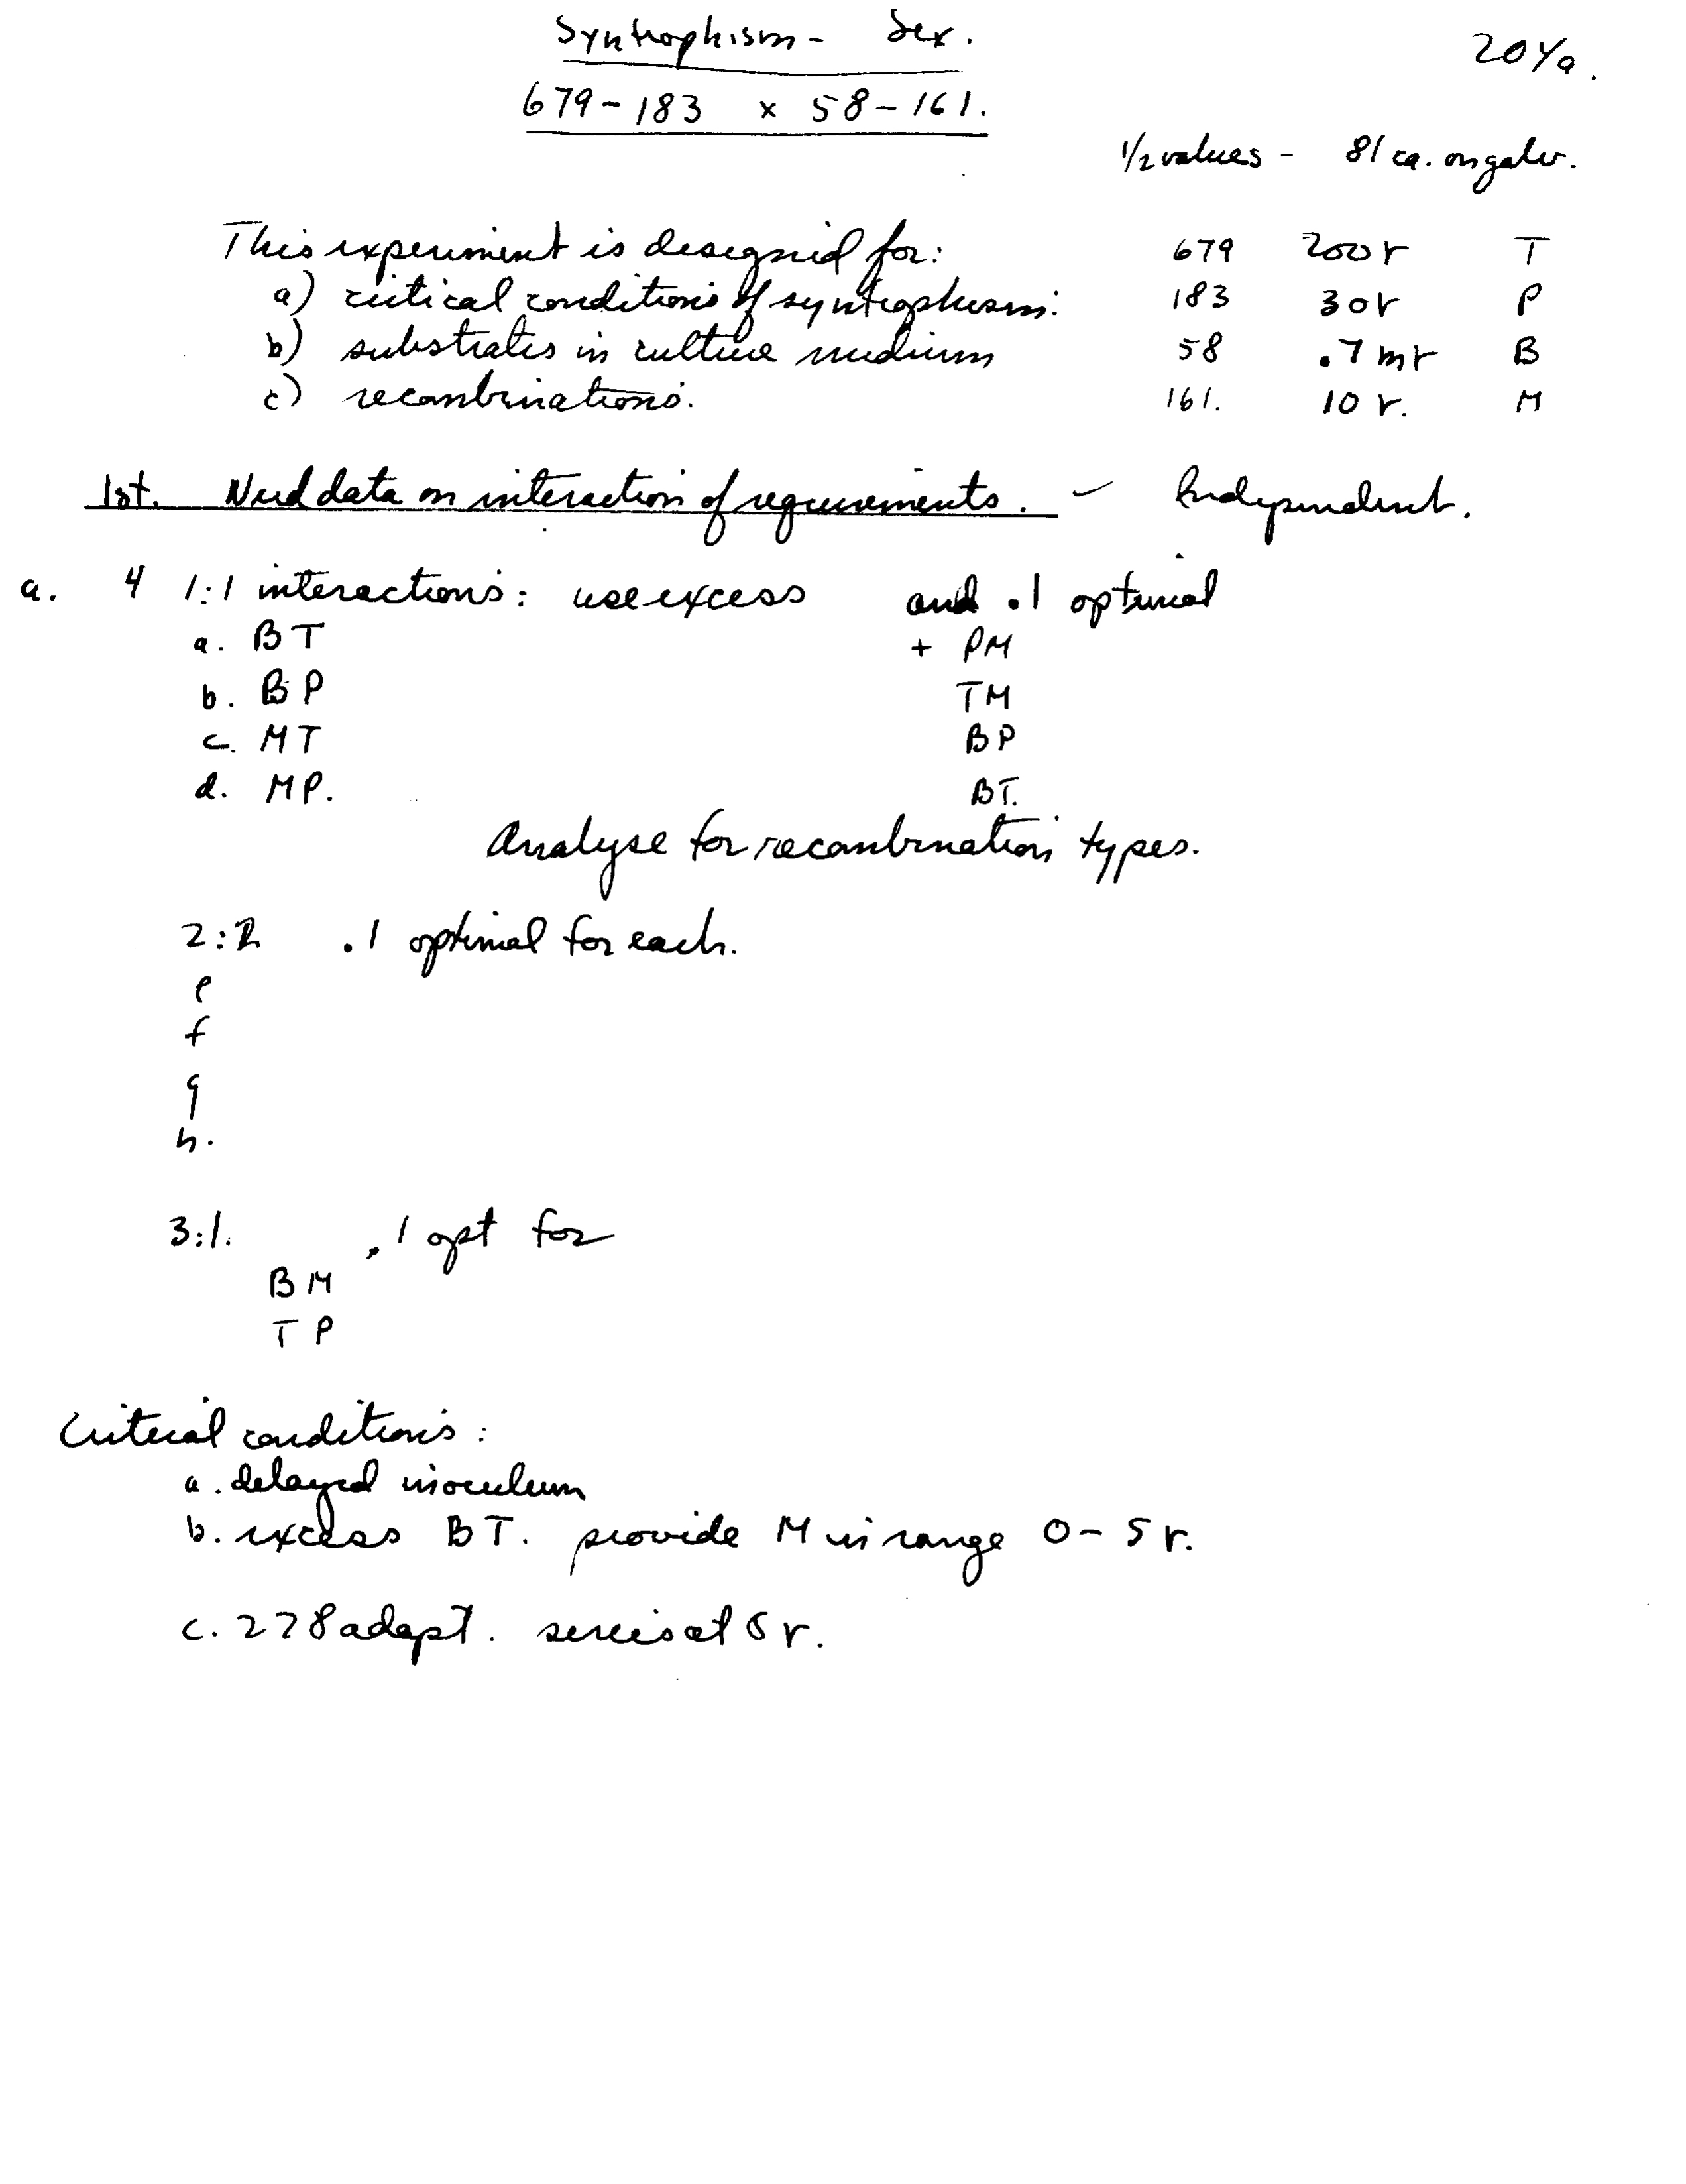 Syntrophism - Sex.
204a.
679-183 x 58-161.
1/2 values - 81 ca. on galv.
This experiment is designed for:
a) critical conditions of syntrophism.
b) substrates in culture medium
c) recombinations.
679 200 γ T
183 30 γ P
58 .7 mγ B
161. 10 γ. M
1st. Need data on interaction of requirements. - Independent.
a. 4 1:1 interactions: use excess and .1 optimal
a. BT + PM
b. BP TM
c. MT BP
d. MP. BT.
Analyse for recombination types.
2:2 .1 optimal for each.
e
f
g
h.
3:1. .1 opt for
BM
TP
Critical conditions:
a. delayed inoculum
b. excess BT. provide M in range 0-5 γ.
c. 278 adapt. series at 5 γ.